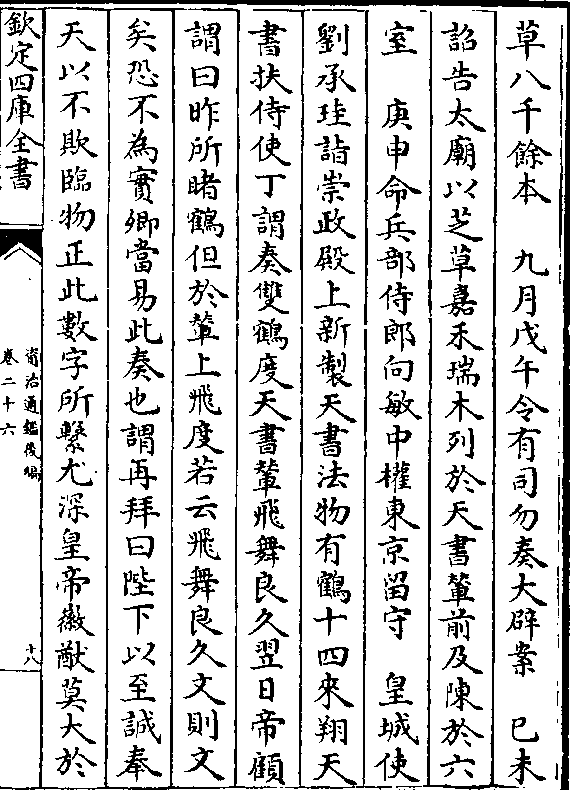 草八千餘本　九月戊午令有司勿奏大辟案　已未
詔告太廟以芝草嘉禾瑞木列於天書輦前及陳於六
室　庚申命兵部侍郎向敏中權東京留守　皇城使
劉承珪詣崇政殿上新製天書法物有鶴十四來翔天
書扶侍使丁謂奏雙鶴度天書輦飛舞良久翌日帝顧
謂曰昨所睹鶴但於輦上飛度若云飛舞良久文則文
矣恐不為實卿當易此奏也謂再拜曰陛下以至誠奉
天以不欺臨物正此數字所繫尤深皇帝徽猷莫大於
欽定四庫全書
資治通鑑後編
卷二十六
十八